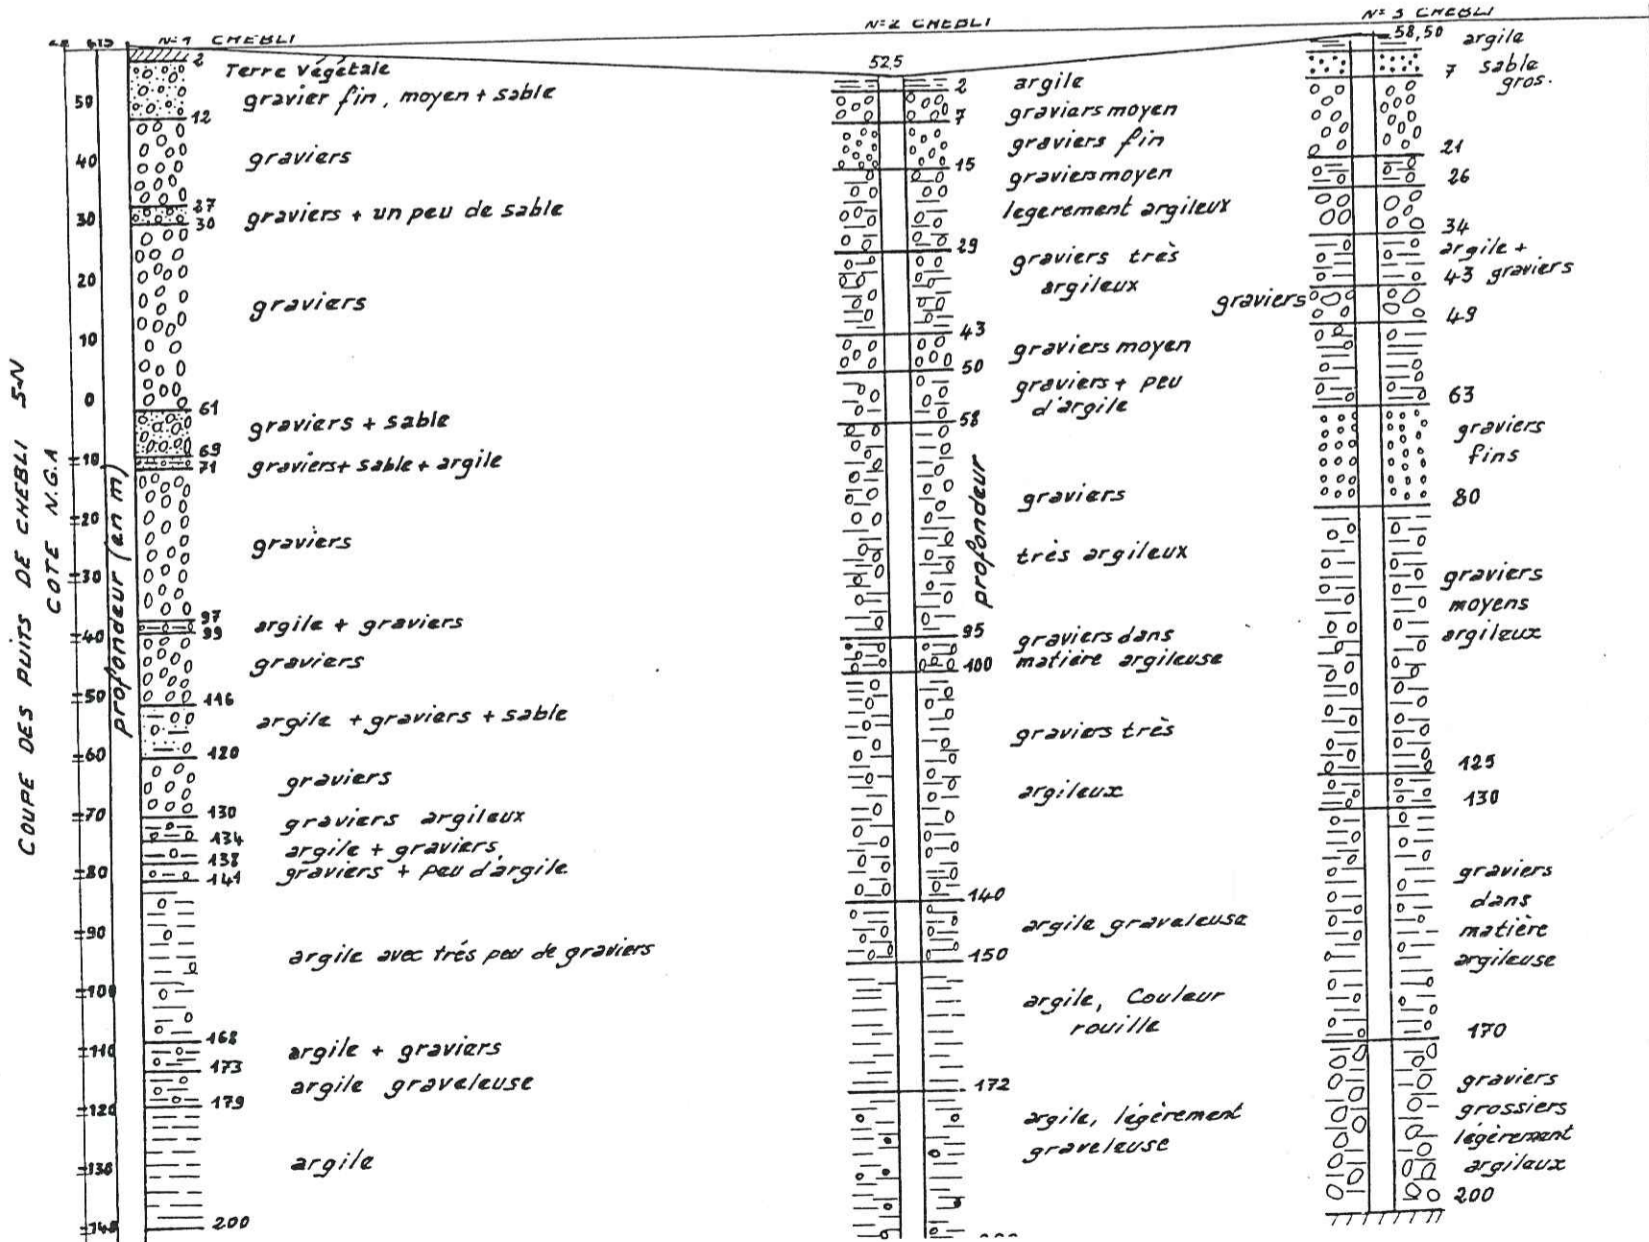 COUPE DES PUITS DE CHEBLI S-N
COTE N.G.A
profondeur (en m)
50
40
30
20
10
0
-10
-20
-30
-40
-50
-60
-70
-80
-90
-100
-110
-120
-130
-140
N=1 CHEBLI
2
Terre végétale
gravier fin, moyen + sable
12
graviers
27
graviers + un peu de sable
30
graviers
61
graviers + sable
69
graviers + sable + argile
71
graviers
97
argile + graviers
99
graviers
116
argile + graviers + sable
120
graviers
130
graviers argileux
134
argile + graviers
138
graviers + peu d'argile
141
argile avec trés peu de graviers
168
argile + graviers
173
argile graveleuse
179
argile
200
N=2 CHEBLI
52,5
profondeur
argile
2
graviers moyen
7
graviers fin
15
graviers moyen
legerement argileux
29
graviers très
argileux
43
graviers moyen
50
graviers + peu
d'argile
58
graviers
très argileux
95
graviers dans
matière argileuse
100
graviers très
argileux
140
argile graveleuse
150
argile, Couleur
rouille
172
argile, légèrement
graveleuse
N= 3 CHEBLI
58,50
argile
7 sable
gros.
21
26
34
argile +
43 graviers
graviers
49
63
graviers
fins
80
graviers
moyens
argileux
125
130
graviers
dans
matière
argileuse
170
graviers
grossiers
légèrement
argileux
200